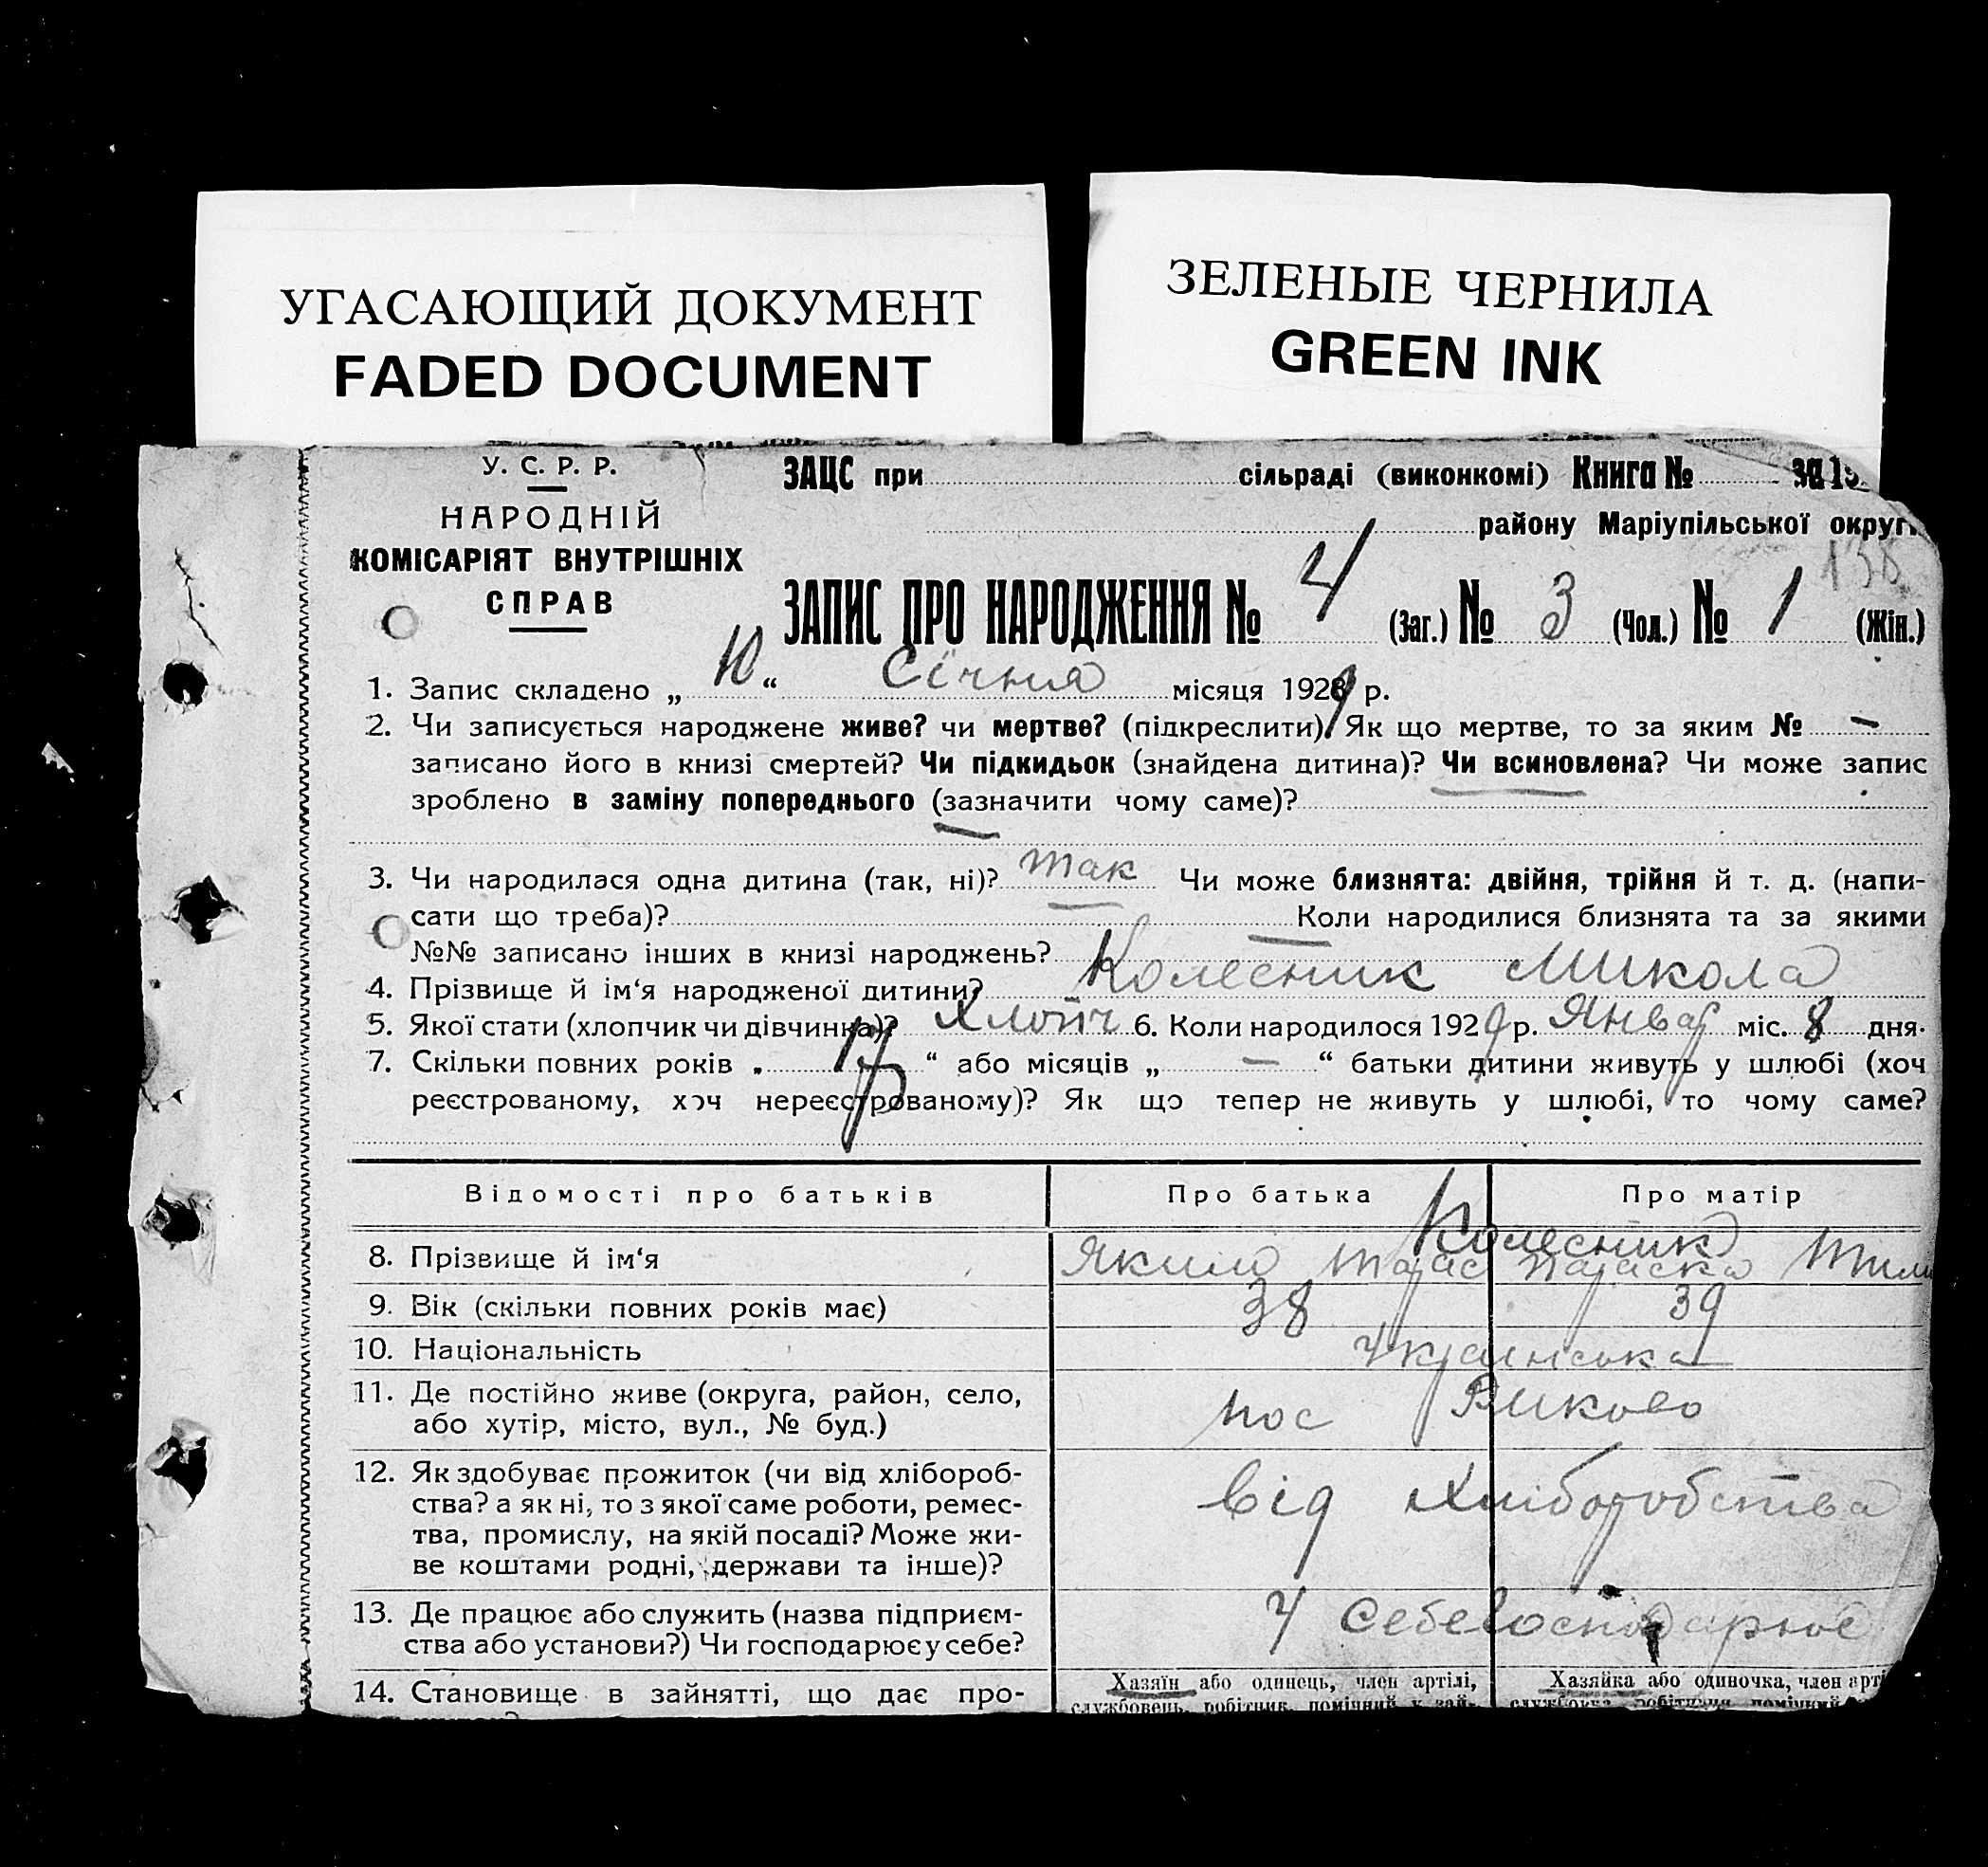 УГАСАЮЩИЙ ДОКУМЕНТ
FADED DOCUMENT
ЗЕЛЕНЫЕ ЧЕРНИЛА
GREEN INK
У. С. Р. Р.
НАРОДНІЙ
КОМІСАРІЯТ ВНУТРІШНІХ
СПРАВ
ЗАЦС при сільраді (виконкомі) Книга № за 19
району Маріупільської округи
138
ЗАПИС ПРО НАРОДЖЕННЯ № 4 (Заг.) № 3 (Чол.) № 1 (Жін.)
1. Запис складено „ 10 “ Січня місяця 1929 р.
2. Чи записується народжене живе? чи мертве? (підкреслити). Як що мертве, то за яким № —
записано його в книзі смертей? Чи підкидьок (знайдена дитина)? Чи всиновлена? Чи може запис
зроблено в заміну попереднього (зазначити чому саме)?
3. Чи народилася одна дитина (так, ні)? так Чи може близнята: двійня, трійня й т. д. (напи-
сати що треба)? Коли народилися близнята та за якими
№№ записано інших в книзі народжень?
4. Прізвище й ім‘я народженої дитини? Колесник Микола
5. Якої стати (хлопчик чи дівчинка)? Хлопч 6. Коли народилося 1929 р. Январ міс. 8 дня.
7. Скільки повних років „ “ або місяців „ — “ батьки дитини живуть у шлюбі (хоч
реєстрованому, хоч нереєстрованому)? Як що тепер не живуть у шлюбі, то чому саме?
Відомості про батьків Про батька Про матір
Колесник
8. Прізвище й ім‘я Яким Тарас Параска Тим
9. Вік (скільки повних років має) 38 39
10. Національність Українська
11. Де постійно живе (округа, район, село,
або хутір, місто, вул., № буд.) пос Риково
12. Як здобуває прожиток (чи від хлібороб-
ства? а як ні, то з якої саме роботи, ремес-
тва, промислу, на якій посаді? Може жи-
ве коштами родні, держави та інше)? від Хліборобства
13. Де працює або служить (назва підприєм-
ства або установи?) Чи господарює у себе? У Себе Господарює
14. Становище в зайнятті, що дає про-
Хазяїн або одинець, член артілі,
службовець, робітник, помічний у зай-
Хазяйка або одиночка, член арті
службовка робітниця помічний